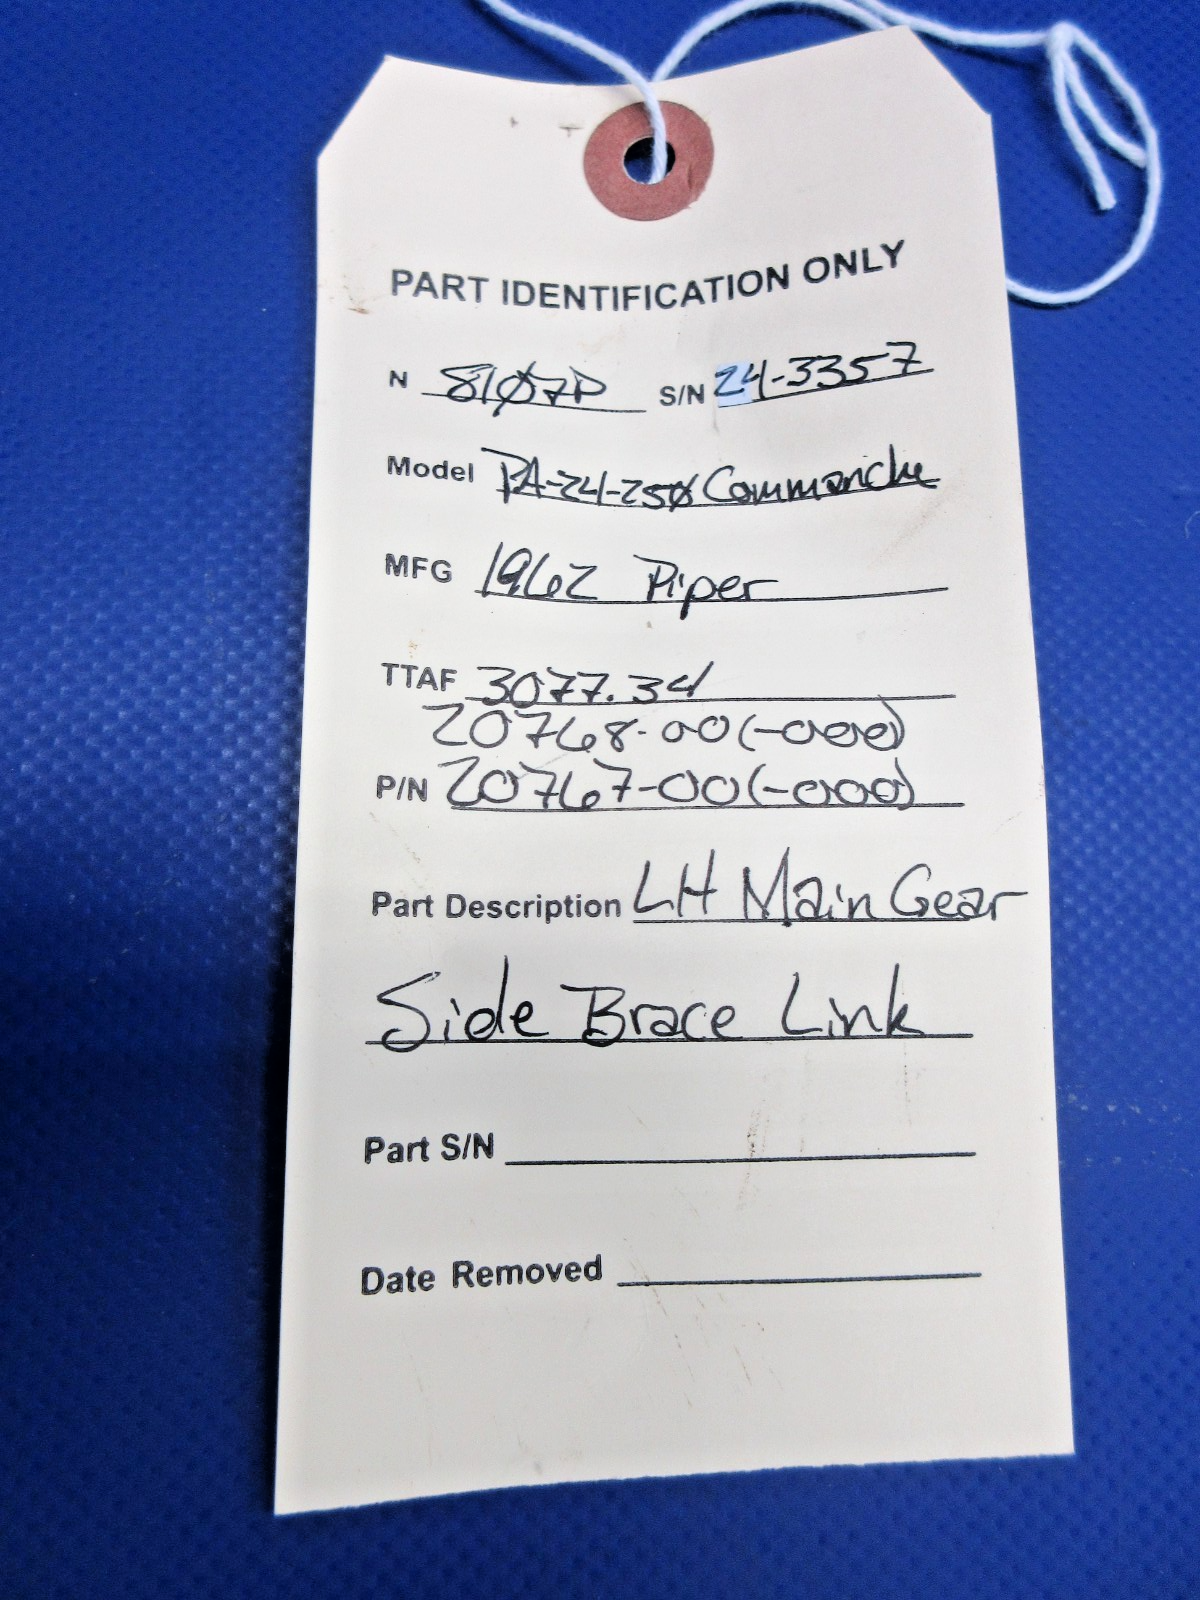 PART IDENTIFICATION ONLY
N 81Ø7P S/N 24-3357
Model PA-24-25Ø Commanche
MFG 1962 Piper
TTAF 3077.34
20768-00(-000)
P/N 20767-00(-000)
Part Description LH Main Gear
Side Brace Link
Part S/N
Date Removed